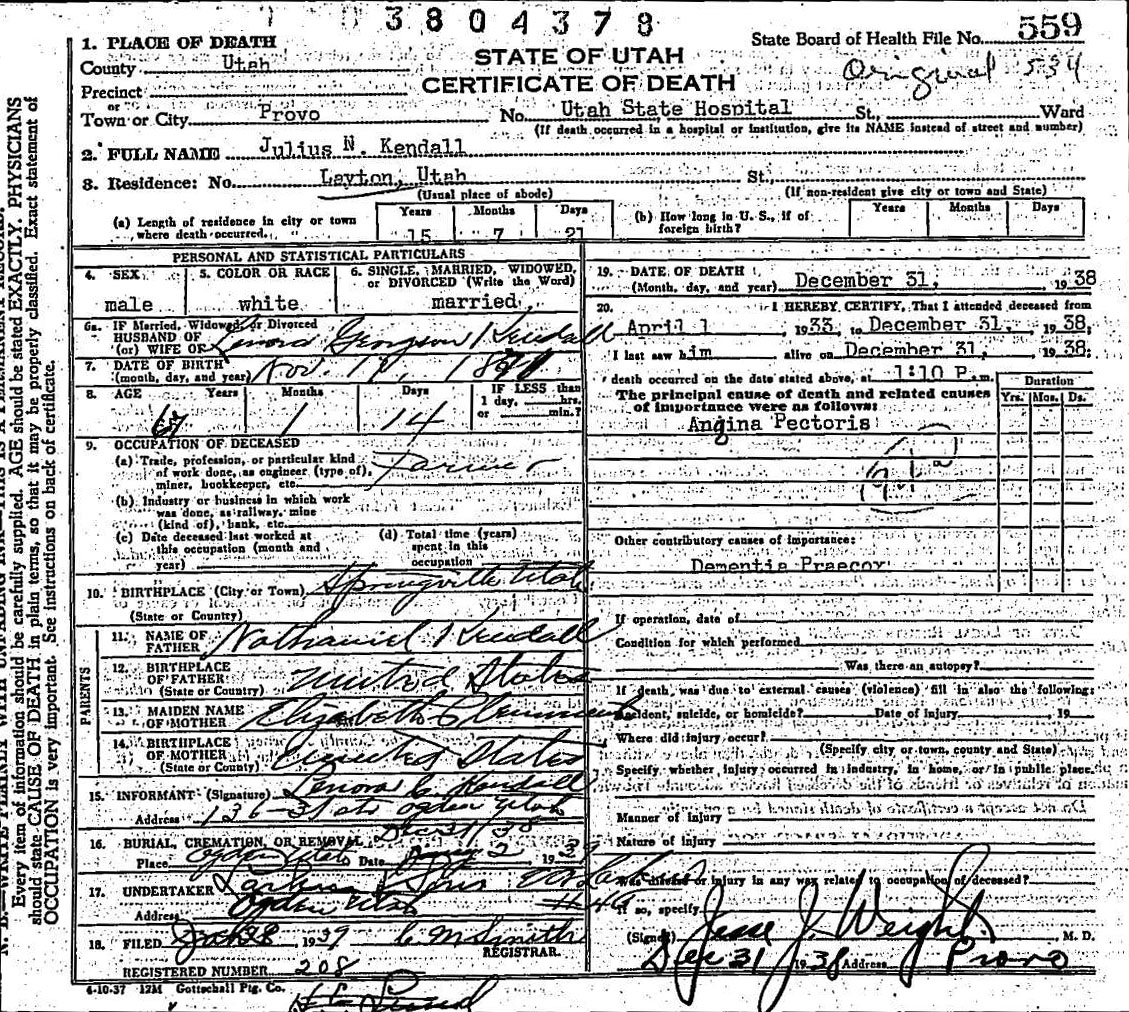 3804378
559
1. PLACE OF DEATH
STATE OF UTAH
State Board of Health File No.
County Utah
CERTIFICATE OF DEATH
Original 534
Precinct
or
Town or City Provo No. Utah State Hospital St., Ward
(If death occurred in a hospital or institution, give its NAME instead of street and number)
2. FULL NAME Julius N. Kendall
3. Residence: No. Layton, Utah St.
(Usual place of abode) (If non-resident give city or town and State)
(a) Length of residence in city or town where death occurred. Years 15 Months 7 Days 21
(b) How long in U. S., if of foreign birth? Years Months Days
PERSONAL AND STATISTICAL PARTICULARS
4. SEX male
5. COLOR OR RACE white
6. SINGLE, MARRIED, WIDOWED, or DIVORCED (Write the Word) married
6a. IF Married, Widowed, or Divorced
HUSBAND OF
(or) WIFE OF Lenora Kendall
7. DATE OF BIRTH
(month, day, and year) Nov. 18
8. AGE Years Months 1 Days 14 IF LESS than 1 day, hrs. or min.?
9. OCCUPATION OF DECEASED
(a) Trade, profession, or particular kind of work done, as engineer (type of), miner, bookkeeper, etc. Farmer
(b) Industry or business in which work was done, as railway, mine (kind of), bank, etc.
(c) Date deceased last worked at this occupation (month and year)
(d) Total time (years) spent in this occupation
10. BIRTHPLACE (City or Town) Springville Utah
(State or Country)
PARENTS
11. NAME OF FATHER Nathaniel Kendall
12. BIRTHPLACE OF FATHER (State or Country) United States
13. MAIDEN NAME OF MOTHER Elizabeth
14. BIRTHPLACE OF MOTHER (State or Country) United States
15. INFORMANT (Signature) Lenora G. Kendall
Address 136-31st Ogden Utah
Dec 31/38
16. BURIAL, CREMATION, OR REMOVAL
Place Ogden Utah Date 2 1939
17. UNDERTAKER Larkin & Sons
Address Ogden Utah
18. FILED 1939 REGISTRAR.
REGISTERED NUMBER 208
4-10-37 12M Gottschall Ptg. Co.
19. DATE OF DEATH
(Month, day, and year) December 31, 1938
20. I HEREBY CERTIFY, That I attended deceased from
April 1 1933, to December 31, 1938,
I last saw him alive on December 31, 1938;
death occurred on the date stated above, at 1:10 P.m.
The principal cause of death and related causes of importance were as follows:
Duration
Yrs. Mos. Ds.
Angina Pectoris
Other contributory causes of importance:
Dementia Praecox
If operation, date of
Condition for which performed
Was there an autopsy?
If death was due to external causes (violence) fill in also the following:
Accident, suicide, or homicide? Date of injury 19
Where did injury occur?
(Specify city or town, county and State)
Specify whether injury occurred in industry, in home, or in public place.
Manner of injury
Nature of injury
Was disease or injury in any way related to occupation of deceased?
If so, specify
(Signed) Jesse J. Weight M. D.
Dec 31 1938 Address Provo
N. B.—WRITE PLAINLY WITH UNFADING INK—THIS IS A PERMANENT RECORD.
Every item of information should be carefully supplied. AGE should be stated EXACTLY. PHYSICIANS
should state CAUSE OF DEATH in plain terms, so that it may be properly classified. Exact statement of
OCCUPATION is very important. See instructions on back of certificate.